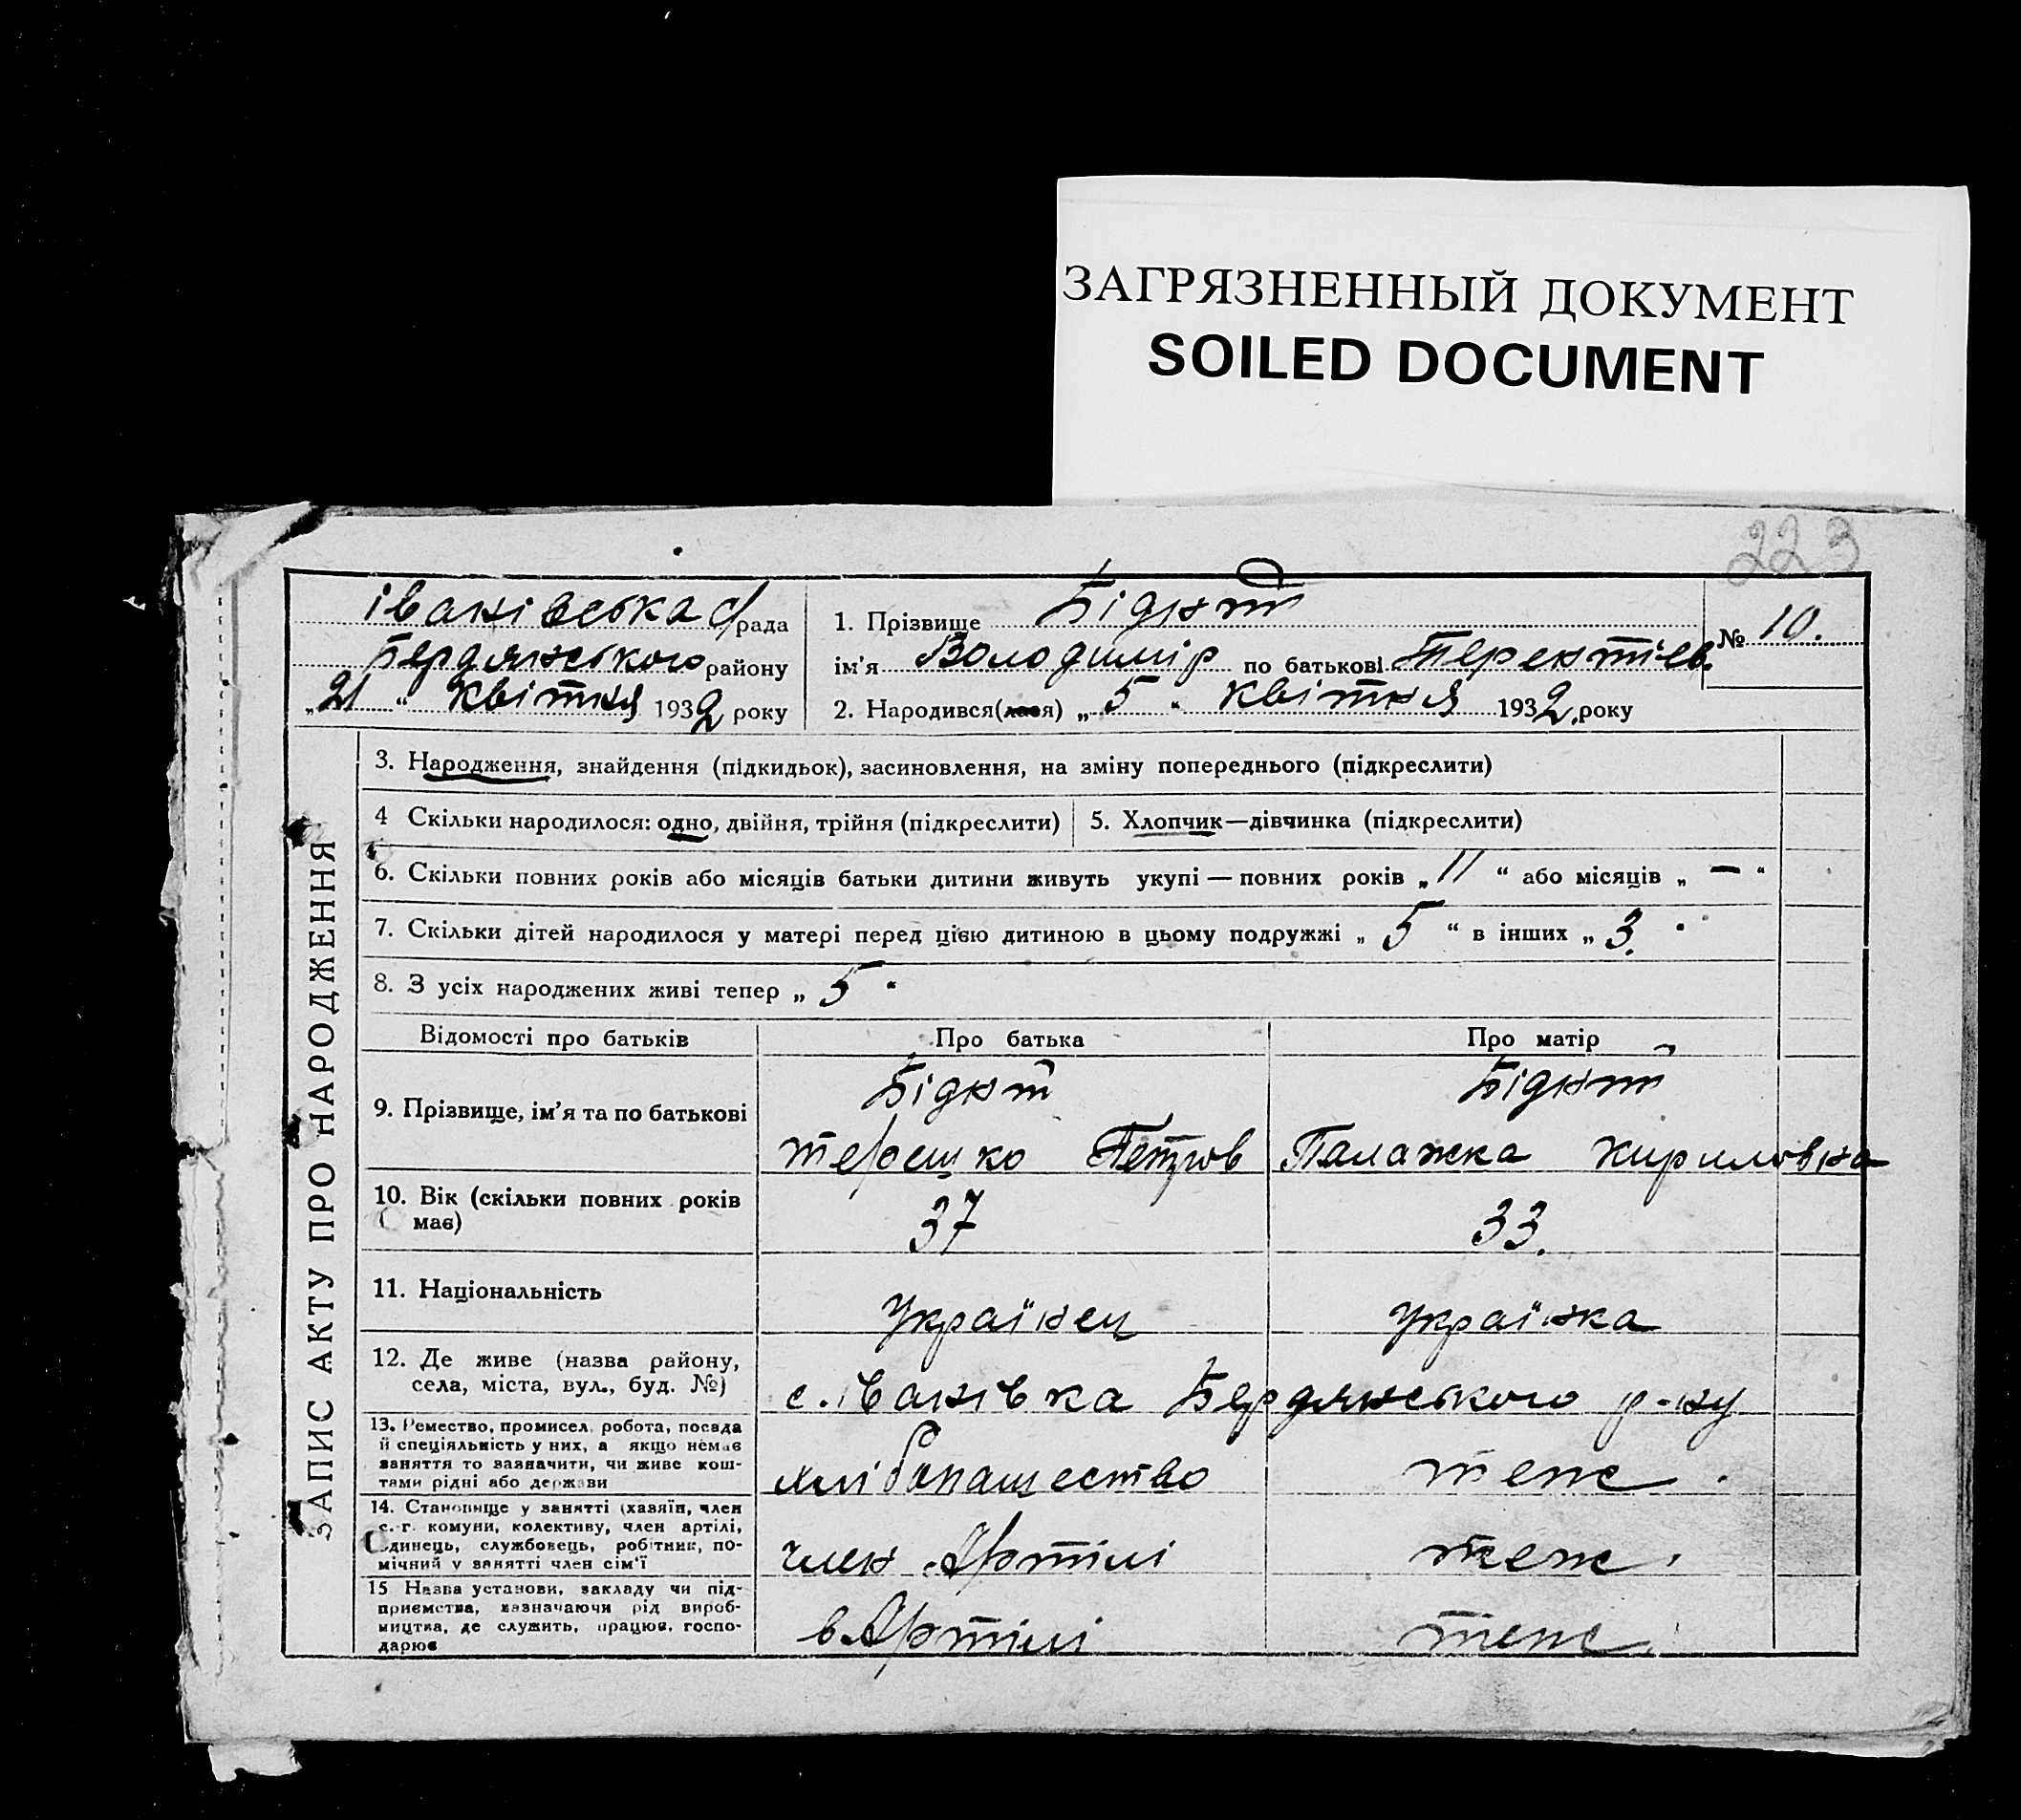 ЗАГРЯЗНЕННЫЙ ДОКУМЕНТ
SOILED DOCUMENT
223
Іванівська с/рада
Бердянського району
„21“ квітня 1932 року
1. Прізвище
ім’я Володимір по батькові
2. Народився(лася) „5“ квітня 1932 року
№ 10.
ЗАПИС АКТУ ПРО НАРОДЖЕННЯ
3. Народження, знайдення (підкидьок), засиновлення, на зміну попереднього (підкреслити)
4 Скільки народилося: одно, двійня, трійня (підкреслити)
5. Хлопчик—дівчинка (підкреслити)
6. Скільки повних років або місяців батьки дитини живуть укупі — повних років „11“ або місяців „—“
7. Скільки дітей народилося у матері перед цією дитиною в цьому подружжі „5“ в інших „3.“
8. З усіх народжених живі тепер „5“
Відомості про батьків
Про батька
Про матір
9. Прізвище, ім’я та по батькові
терешко Петров
Палажка Кириловна
10. Вік (скільки повних років
має)
37
33.
11. Національність
Українец
Українка
12. Де живе (назва району,
села, міста, вул., буд. №)
с. Іванівка Бердянського р-ну
13. Ремество, промисел, робота, посада
й спеціяльність у них, а якщо немає
заняття то зазначити, чи живе кош-
тами рідні або держави
хлібопашество
теж.
14. Становище у занятті (хазяїн, член
с.-г. комуни, колективу, член артілі,
одинець, службовець, робітник, по-
мічний у занятті член сім’ї
член Артілі
теж.
15 Назва установи, закладу чи під-
приємства, зазначаючи рід вироб-
ництва, де служить, працює, госпо-
дарює
в Артілі
теж.